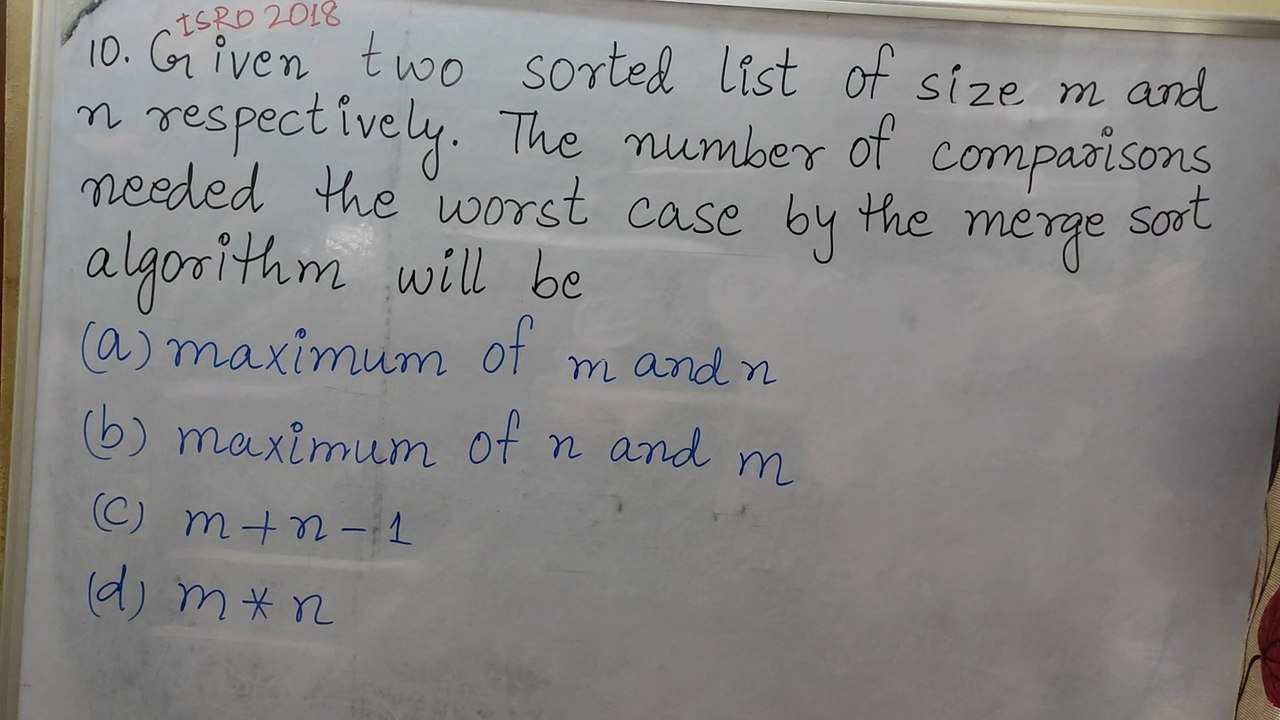 ISRO 2018
10. Given two sorted list of size m and
n respectively. The number of comparisons
needed the worst case by the merge sort
algorithm will be
(a) maximum of m and n
(b) maximum of n and m
(c) m+n-1
(d) m*n